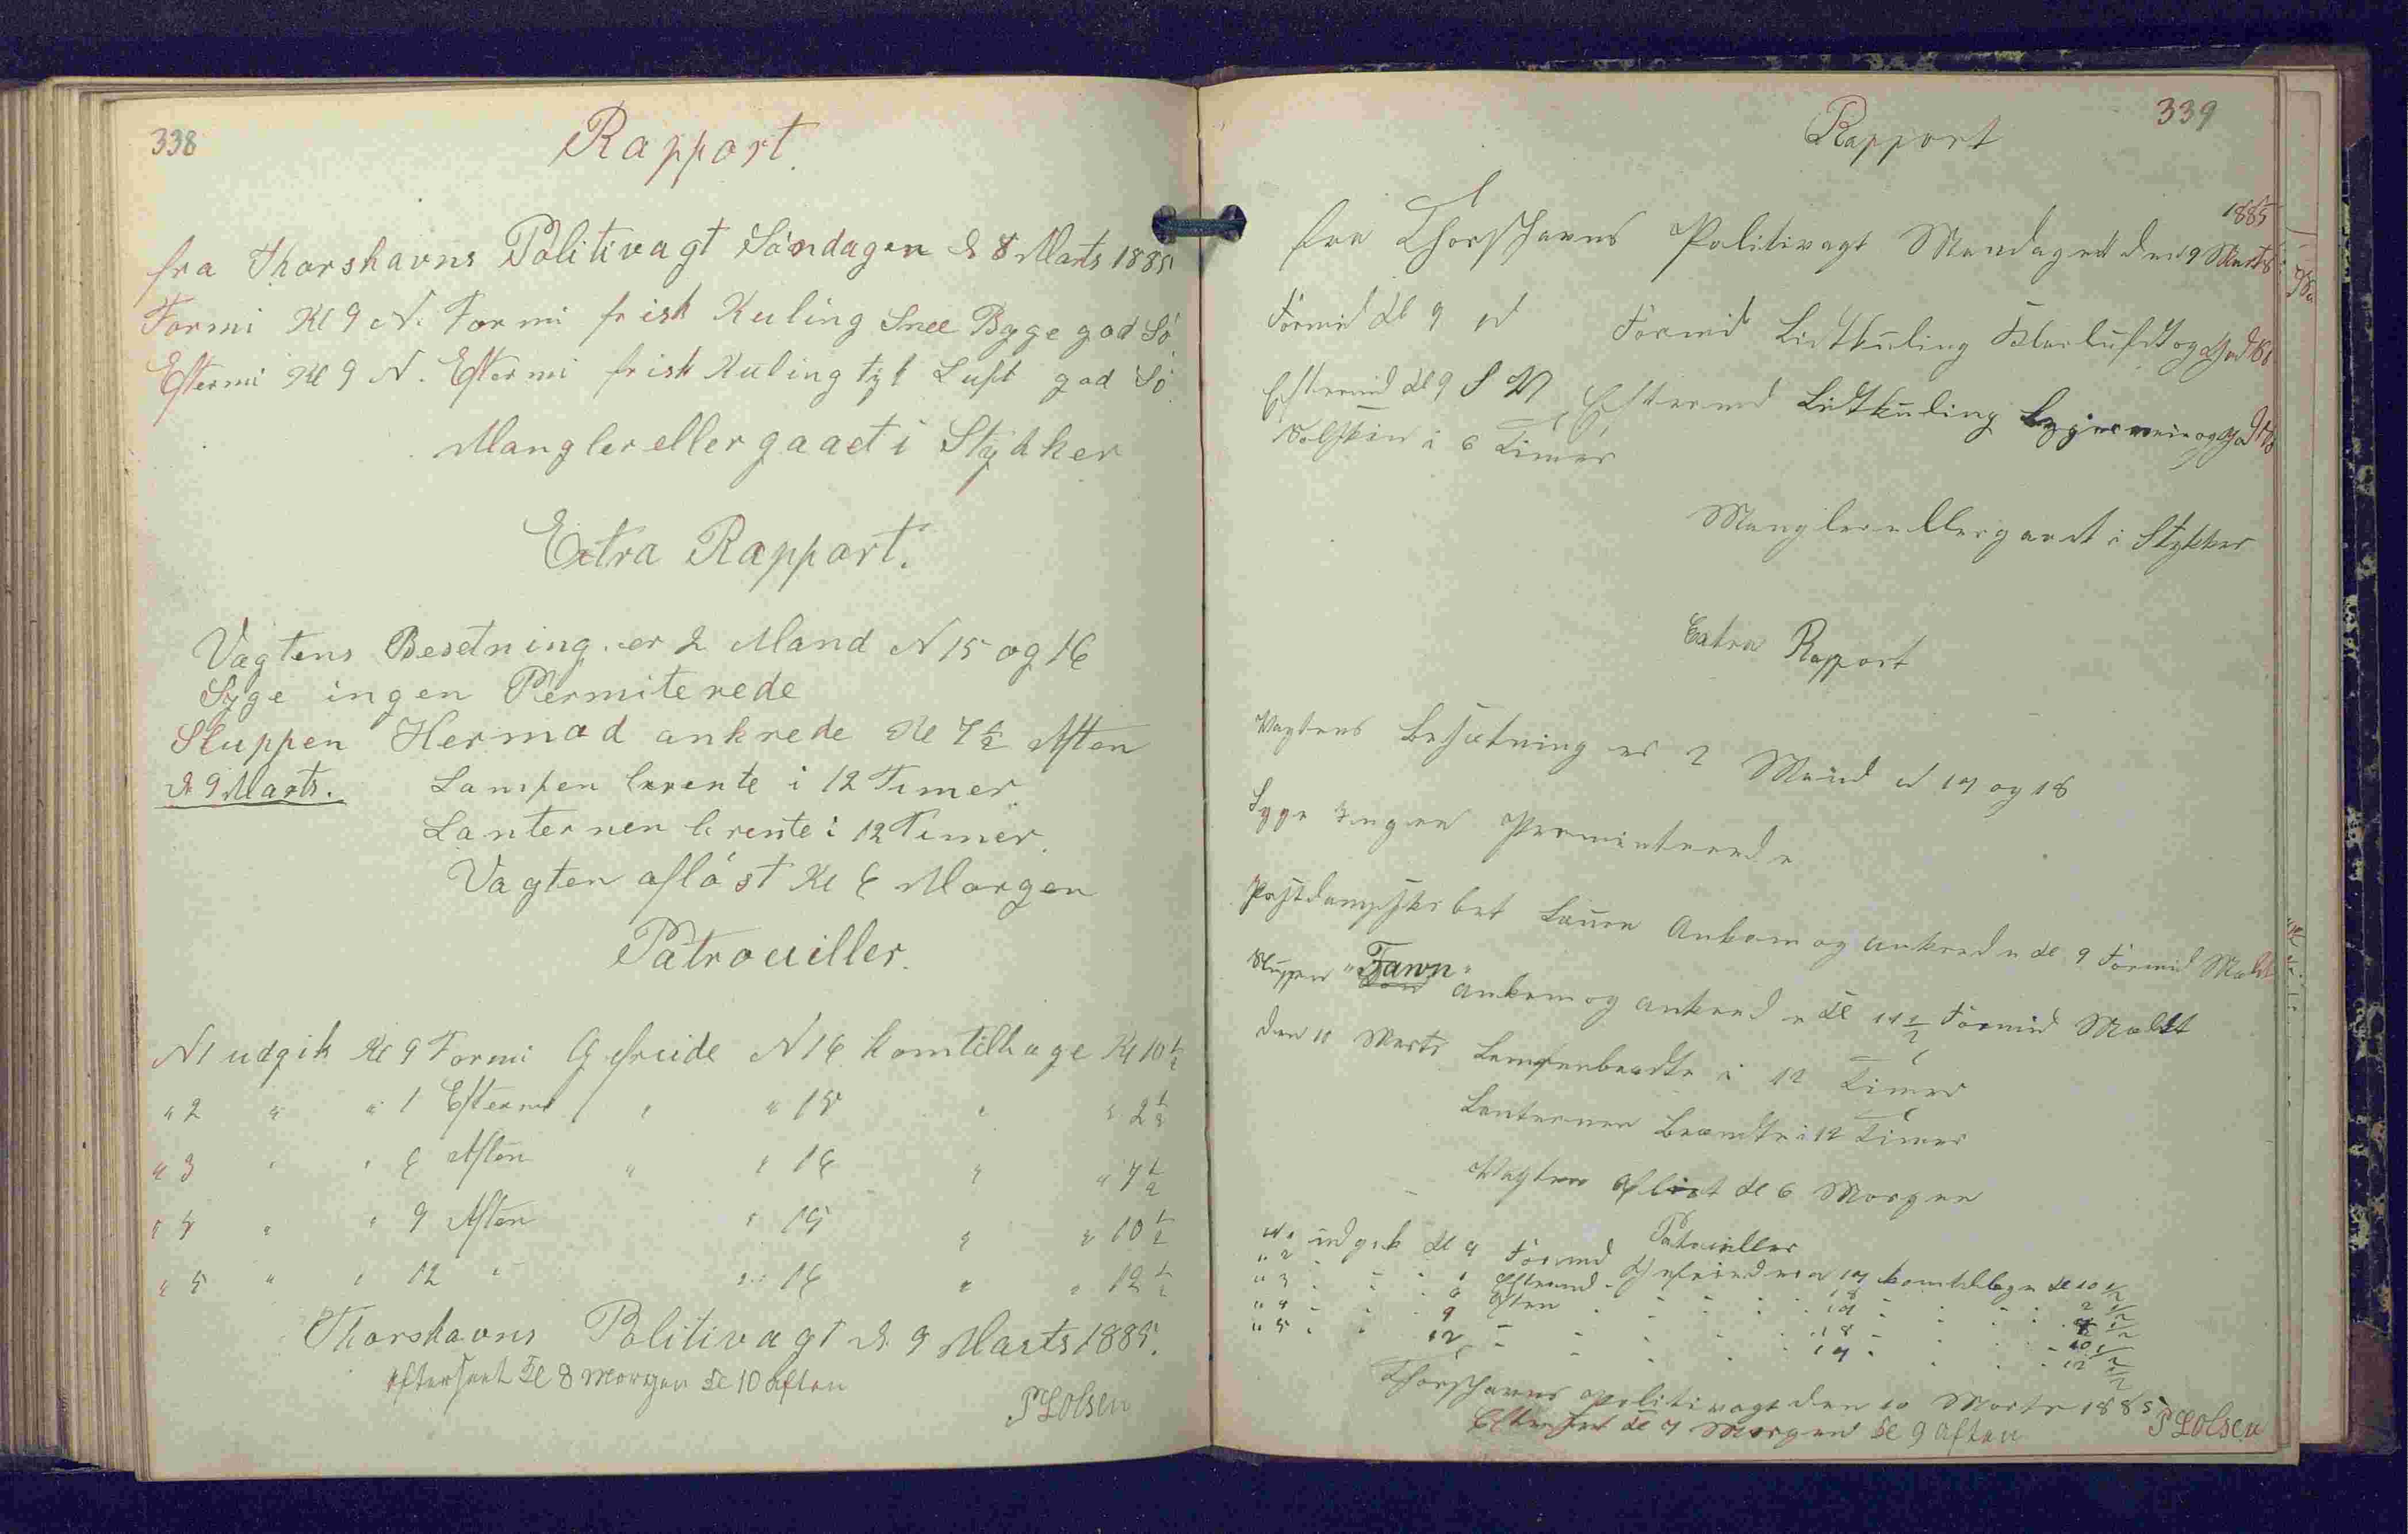 338
Rapport.
fra Thorshavns Politivagt Søndagen d 8 Marts 1885
Formi Kl 9 N. Formi frisk Kuling Snee Byge god Sö
Eftermi Kl 9 N. Eftermi frisk Kuling tyk Luft god Sö.
Mangler eller gaaet i Stykker
Extra Rapport.
Vagtens Besetning er 2 Mand N 15 og 16
Syge ingen Permiterede
Sluppen Hermod ankrede Kl 7 1/2 Aften
d. 9 Marts. Lampen brente i 12 Timer.
Lanternen brente i 12 Timer.
Vagten afløst Kl 6 Morgen
Patrouiller.
N 1 udgik Kl 9 Formi Gefreide N 16 kom tilbage Kl 10 1/2
" 2 " " 1 Eftermi " " 15 " " 2 1/2
" 3 " " 6 Aften " " 16 " " 7 1/2
" 4 " " 9 Aften " 15 " " 10 1/2
" 5 " " 12 " " 16 " " 12 1/2
Thorshavns Politivagt d. 9 Marts 1885.
efterseet Kl 8 Morgen Kl 10 Aften
P L Olsen
339
Rapport
1885
fra Thorshavns Politivagt Mandagen den 9 Marts
Formid Kl 9 N Formid Lidt kuling Klar luft og god Sö
Eftermid Kl 9 S V Eftermid Lidt kuling og god Sö
Solskin i 6 Timer
Mangler eller gaaet i Stykker
Extra Rapport
Vagtens Besætning er 2 Mand N 17 og 18
Syge Ingen Permiterede
Postdampskibet Laura Ankom og ankrede Kl 9 Formid Meldt
Sluppen "Fawn" ankom og ankrede Kl 11 1/2 Formid Meldt
den 10 Marts Lampen brendte i 12 Timer
Lanternen Brændte i 12 Timer
Vagten afløst Kl 6 Morgen
Patruiller
N 1 udgik Kl 9 Formid Gefreider N 17 kom tilbage Kl 10 1/2
" 2 - - 1 Eftermid - - 18 - - 2 1/2
" 3 - - 6 Aften - - 17 - - 7 1/2
" 4 - - 9 - - - 18 - - 10 1/2
" 5 - - 12 - - - 17 - - 12 1/2
Thorshavns Politivagt den 10 Marts 1885
Efterseet Kl 7 Morgen Kl 9 Aften
P L Olsen